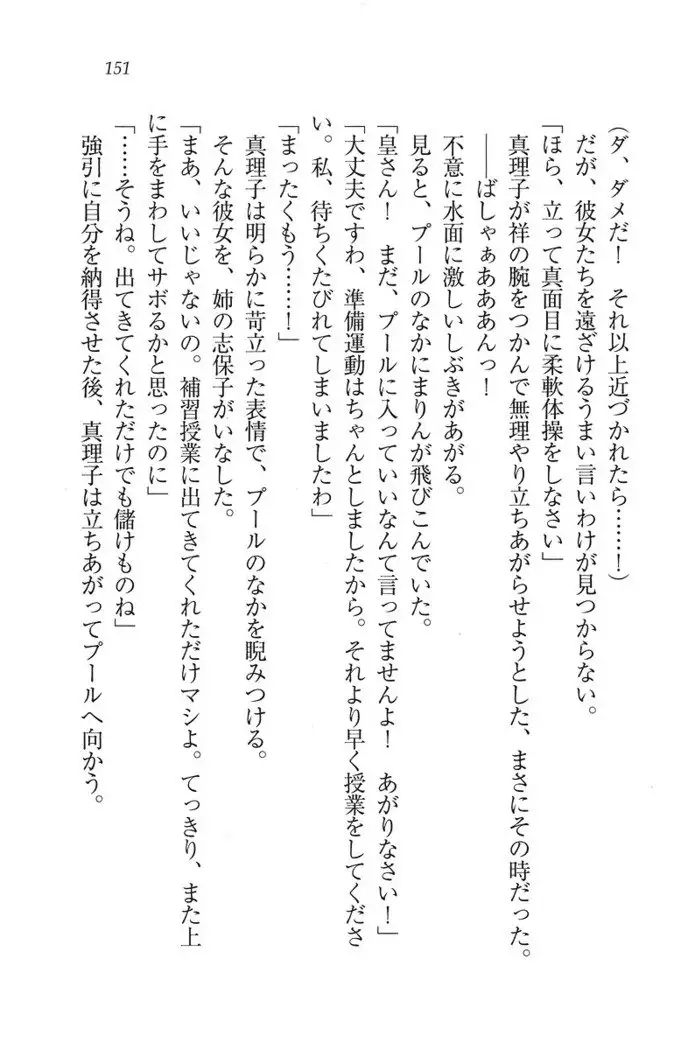 151
(ダ、ダメだ！　それ以上近づかれたら……！)
だが、彼女たちを遠ざけるうまい言いわけが見つからない。
「ほら、立って真面目に柔軟体操をしなさい」
真理子が祥の腕をつかんで無理やり立ちあがらせようとした、まさにその時だった。
――ばしゃぁあああんっ！
不意に水面に激しいしぶきがあがる。
見ると、プールのなかにまりんが飛びこんでいた。
「皇さん！　まだ、プールに入っていいなんて言ってませんよ！　あがりなさい！」
「大丈夫ですわ、準備運動はちゃんとしましたから。それより早く授業をしてくださ
い。私、待ちくたびれてしまいましたわ」
「まったくもう……！」
真理子は明らかに苛立った表情で、プールのなかを睨みつける。
そんな彼女を、姉の志保子がいなした。
「まあ、いいじゃないの。補習授業に出てきてくれただけマシよ。てっきり、また上
に手をまわしてサボるかと思ったのに」
「……そうね。出てきてくれただけでも儲けものね」
強引に自分を納得させた後、真理子は立ちあがってプールへ向かう。